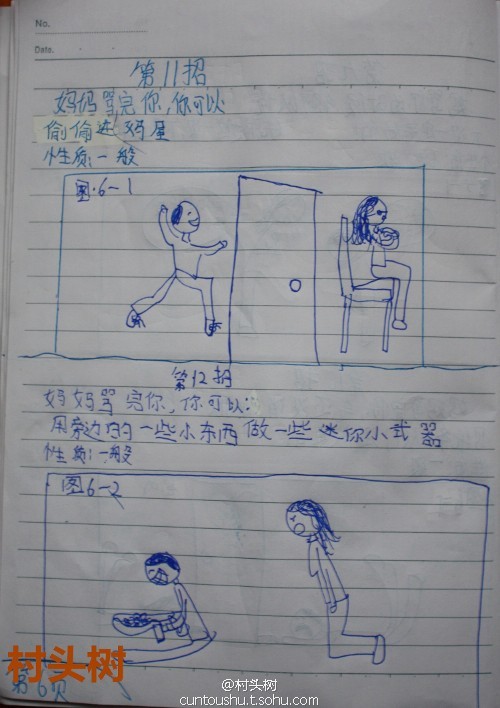 No.
Date.
第11招
妈妈骂完你,你可以:
偷偷进妈屋
性质:一般
图6-1
第12招
妈妈骂完你,你可以:
用旁边的一些小东西做一些迷你小武器
性质:一般
图6-2
村头树
第6页
@村头树
cuntoushu.t.sohu.com